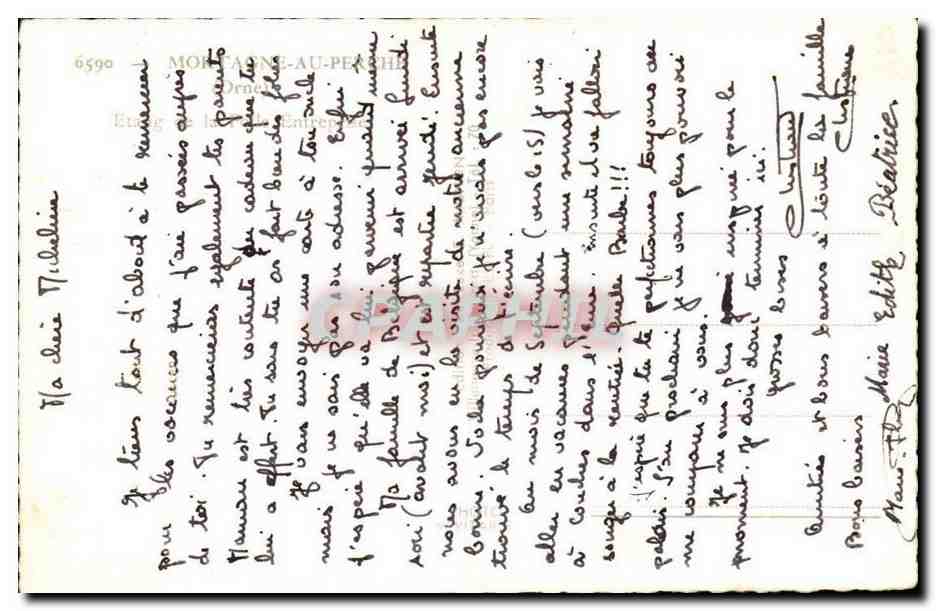 6590 — MORTAGNE-AU-PERCHE
(Orne)
Etang de la Folle Entreprise
CPAPHIL
Ma chère Micheline
Je tiens tout d'abord à te remercier
pour les vacances que j'ai passées auprès
de toi. Tu remercieras également tes parents
Maman est très contente du cadeau que tu
lui a offert. Tu sais tu as fait beaucoup de folies
Je vais envoyer une carte à
mais je ne sais pas son adresse. Enfin
j'espère qu'elle va lui parvenir quand même
Ma famille de Belgique est arrivée lundi
soir (avant moi) et est repartie jeudi. Ensuite
nous avons eu la visite de notre ancienne
bonne. Voilà pourquoi je n'avais pas encore
trouvé le temps de t'écrire.
Au mois de Septembre (vers le 15) je vais
aller en vacances pendant une semaine
à Conches dans l'Eure. Ensuite il va falloir
songer à la rentrée. Quelle Barbe!!!
J'espère que tu te perfectionnes toujours au
palais. J'an prochain je ne vais plus pouvoir
me comparer à vous.
Je ne suis plus inspirée pour le
moment. Je dois donc terminer ici.
grosses bises
Christiane
Amitiés et bons baisers à toute la famille
Christiane
Bons baisers
Marie Edith Béatrice